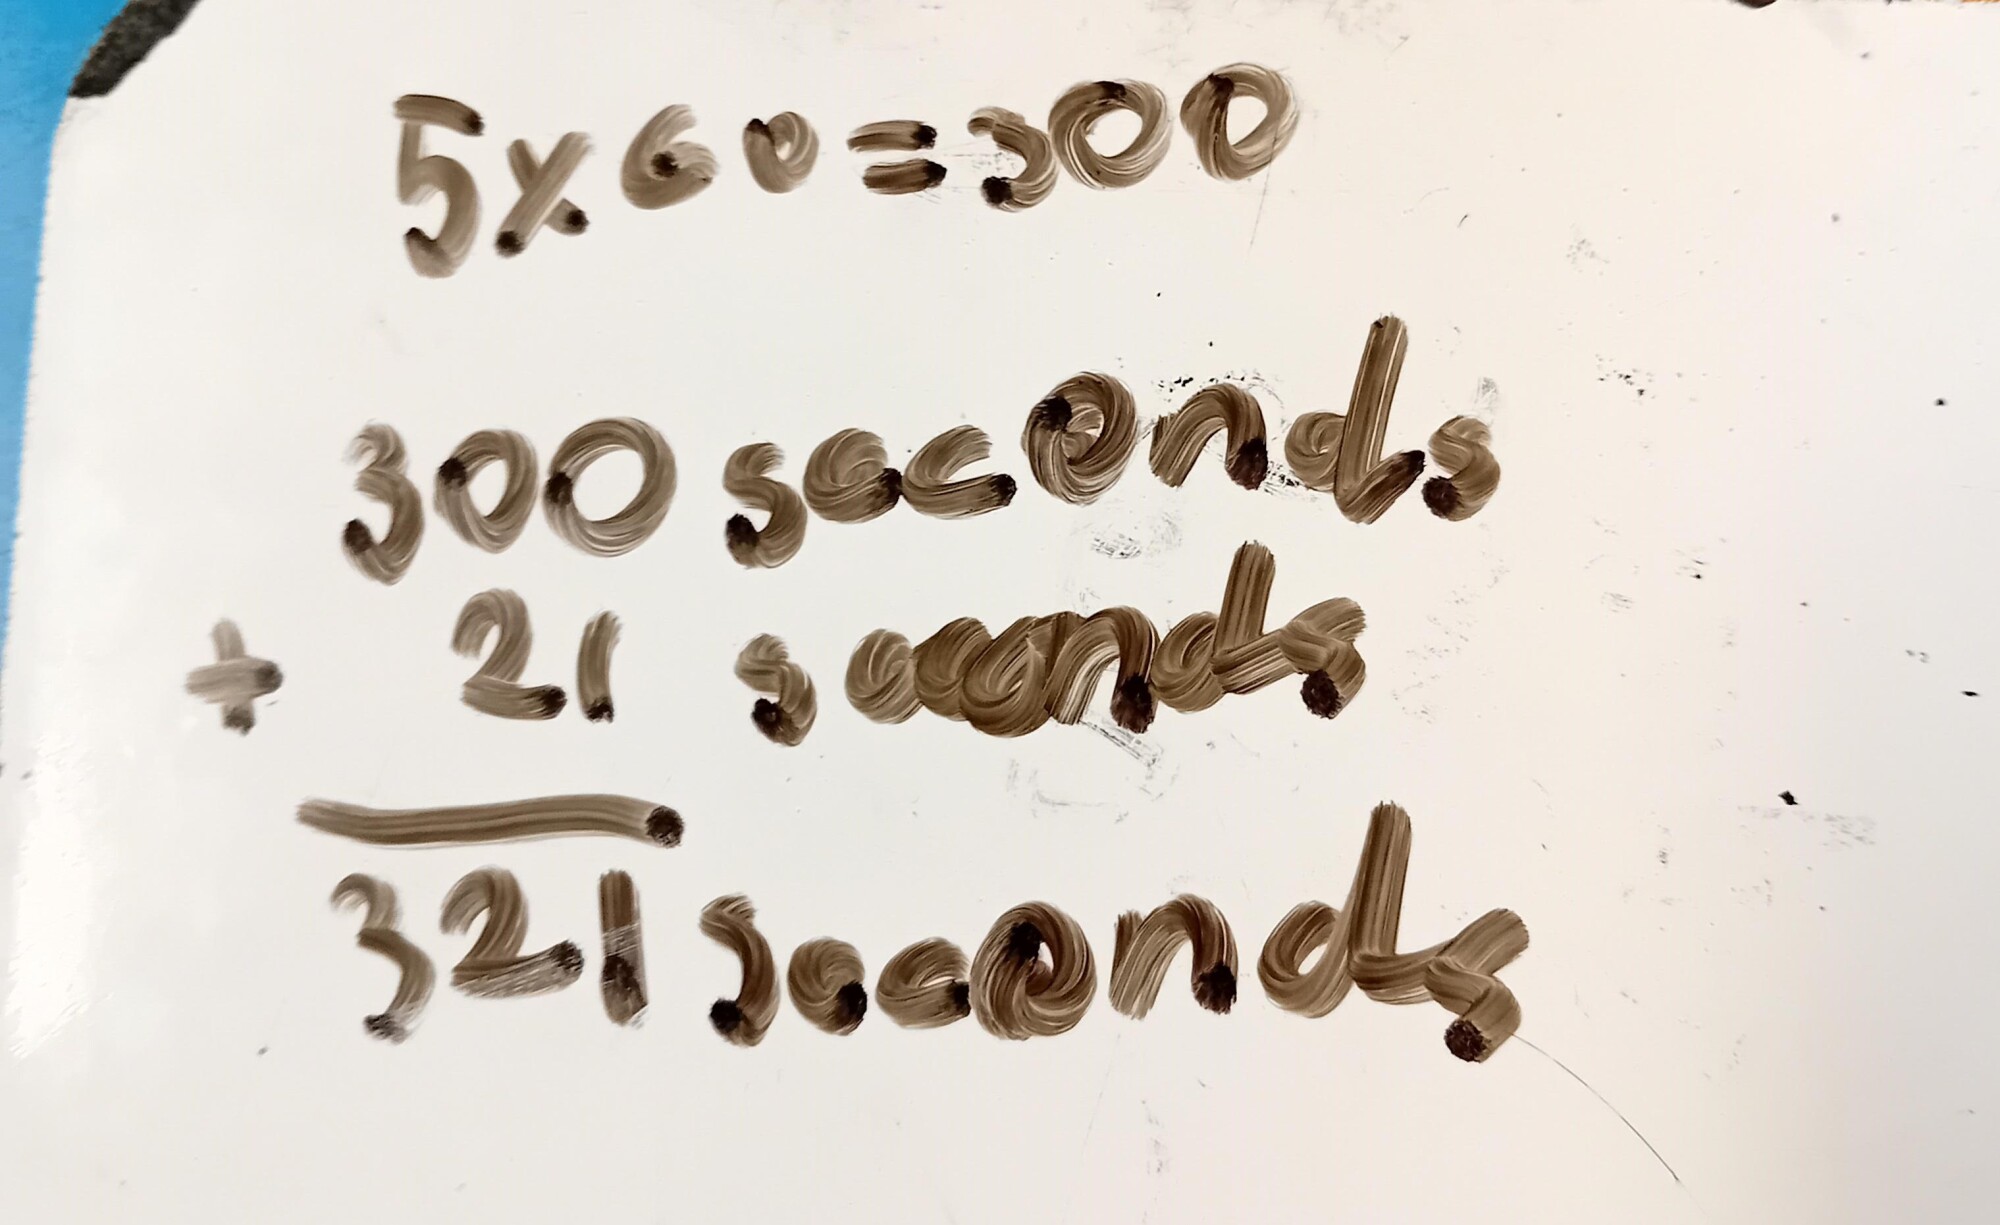 5x60=300
300 seconds
+ 21 seconds
321 seconds